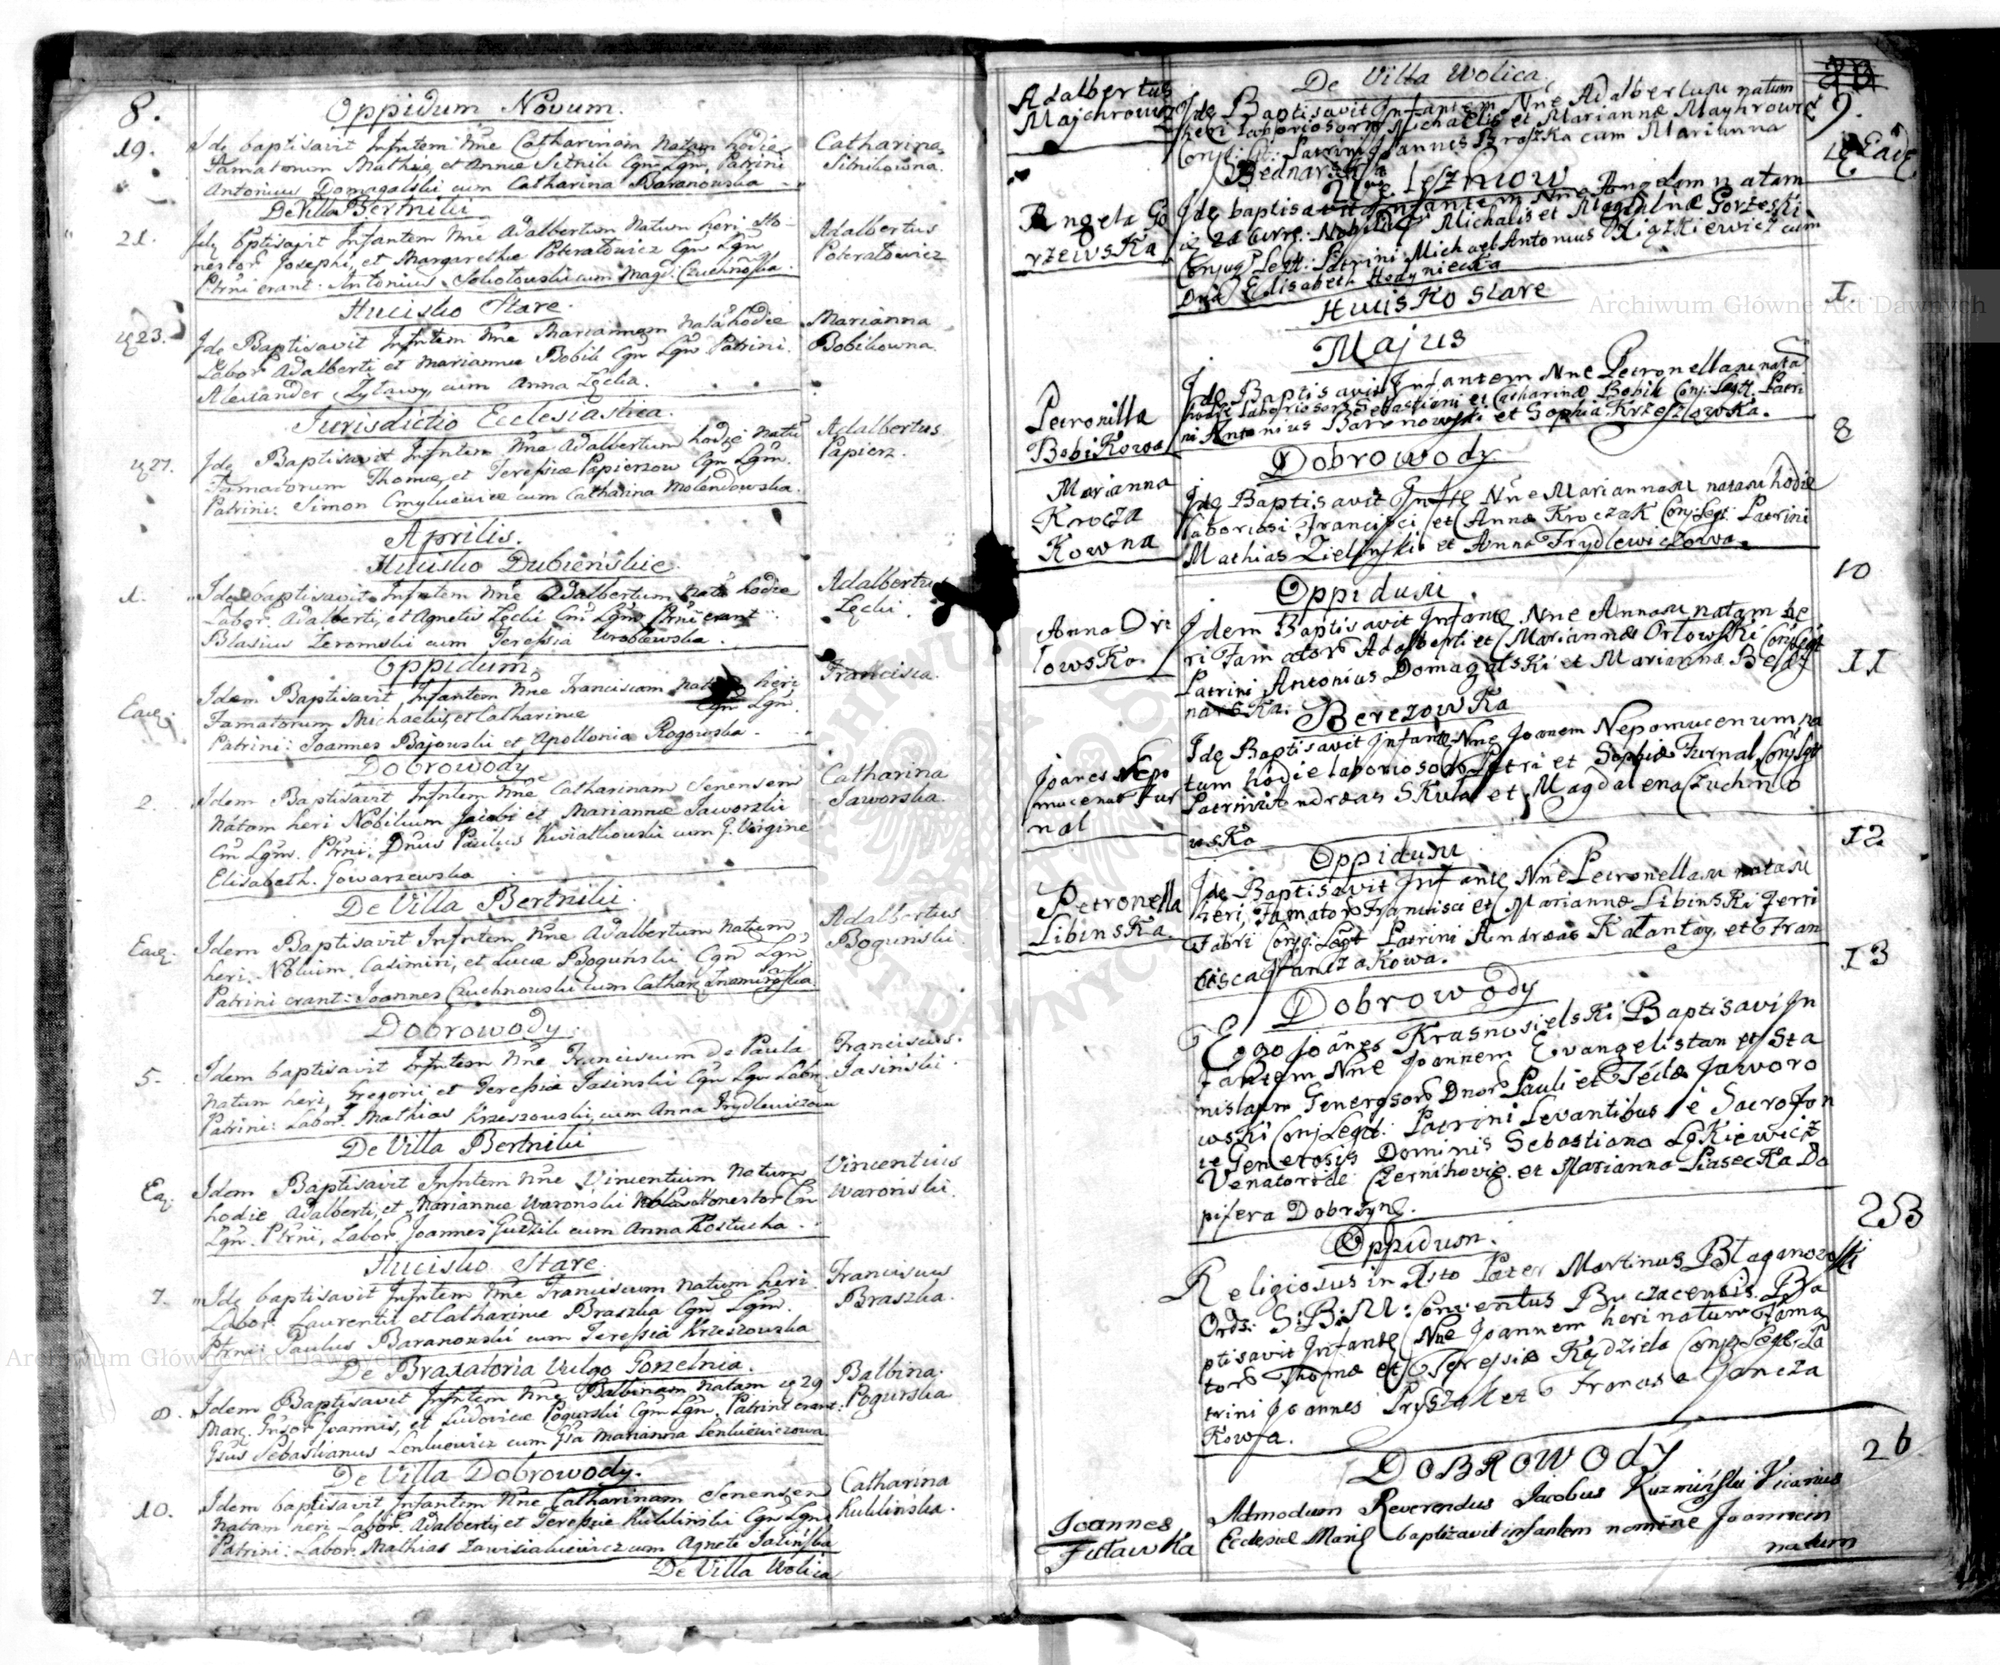 8.
Oppidum Novum.
19. Idē baptisavit Infntem Nne Catharinam natam hodie
Famatorum Mathie, et Annæ Sitnik Cgm Lgm, Patrini
Antonius Domagalski cum Catharina Baranowska
Catharina
Sitnikowna.
De Villa Bertniki
21. Idē bptisavit Infantem Nne Adalbertum natum heri Ho-
nestor Josephi, et Margarethæ Poteratowicz Cgm Lgm
Ptrni erant Antonius Sokołowski cum Magd: Czuchnowska.
Adalbertus
Poteratowicz
Hucisko Stare.
23. Idē Baptisavit Infntem Nne Mariannam natā hodie
Labor Adalberti et Mariannæ Bobik Cgm Lgm Patrini
Alexander Zylawy, cum Anna Zęcka.
Marianna
Bobikowna.
Jurisdictio Ecclesiastica.
27. Idē Baptisavit Infntem Nne Adalbertum hodie natū
Famatorum Thomæ, et Teressiæ Papierzow Cgm Lgm.
Patrini: Simon Cmykiewicz cum Catharina Molendowska.
Adalbertus
Papierz.
Aprilis.
Hucisko Dubieńskie.
1. Idē baptisavit Infntem Nne Adalbertum natū hodie
Labor. Adalberti, et Agnetis Zęcki Cm Lgm Ptrni erant
Blasius Zeromski cum Teressia Wroblewska.
Adalbertus
Zęcki.
Oppidum.
Eadē. Idem Baptisavit Infntem Nne Franciscam heri
Famatorum Michaelis, et Catharinæ Cgm Lgm.
Patrini: Joannes Bajowski et Apollonia Rogowska.
Francisca.
Dobrowody
2. Idem Baptisavit Infntem Nne Catharinam Senensem
Natam heri Nobilium Jacobi et Mariannæ Jaworski
Cm Lgm. Ptrni: Dnus Paulus Kwiatkowski cum G. Virgine
Elisabeth. Gowarzewska
Catharina
Jaworska.
De Villa Bertniki.
Eadē. Idem Baptisavit Infntem Nne Adalbertum natum
heri. Nobilium Casimiri, et Luciæ Bogunski Cgm Lgm
Patrini erant: Joannes Czuchnowski cum Cathar
Adalbertus
Bogunski.
Dobrowody.
5. Idem baptisavit Infntem Nne Franciscum de Paula
natum heri, Gregorii, et Teressiæ Jasinski Cgm Lgm Labor.
Patrini: Labor. Mathias Krzeszowski, cum Anna Frydlewiczowa
Franciscus.
Jasiński.
De Villa Bertniki
Eq. Idem Baptisavit Infntem Nne Vincentium natum
hodie Adalberti, et Mariannæ Waroński Honestor Cm
Lgm. Ptrni, Labor Joannes Gudzik cum Anna Kostucka.
Vincentius
Waroński.
Hucisko Stare.
7. Idē baptisavit Infntem Nne Franciscum natum heri
Labor Laurentii et Catharinæ Braszka Cgm Lgm.
Ptrni: Paulus Baranowski cum Teressia Krzeszowska
Franciscus
Braszka.
De Braxatoria Vulgo Gozelnia.
8. Idem Baptisavit Infntem Nne Balbinam natam 29
Mar. Gnsor Joannis, et Ludovicæ Pogurski Cgm Lgm, Patrini erant:
Gsus Sebastianus Lenkiewicz cum Gsa Marianna Lenkiewiczowa
Balbina.
Pogurska
De Villa Dobrowody.
10. Idem baptisavit Infantem Nne Catharinam Senensem
natam heri Labor. Adalberti, et Teressiæ Kuklinski Cgm Lgm
Patrini: Labor. Mathias Zawisiakiewicz cum Agneti Jasińska
Catharina
Kuklińska.
De Villa Wolica
9.
De Villa Wolica.
Adalbertus
Majchrowicz
Idē Baptisavit Infantem Nne Adalbertum natum
heri laboriosorū Michaelis et Mariannæ Mayhrowic
Conju: lt: Patrini Joannes Broszka cum Marianna
Bednarska
Eadē
Leszniow
Angela Go
rzewska
Idē baptisavit Infantem Nne Angelam natam
Nobiliū Michalis et Magdalnæ Gorzeski
Conjug Legt: Patrini Michael Antonius cum
Dna Elisabeth Hodyniecka
Hucisko Stare
1
Majus
Petronilla
Bobikowa
Idē Baptisavit Infantem Nne Petronellam nata
hodie Laboriosorū Sebastiani et Catharinæ Bobik Conj: Legtt. Patri
ni Antonius Baranowski et Sophia Krzeszlowska.
Dobrowody
8
Marianna
Krocza
Kowna
Idē Baptisavit Infntē Nne Mariannam natam hodie
laboriosi Francisci et Annæ Kroczak Conj: Legt: Patrini
Mathias Zielinski et Anna Frydlewiczowa.
10
Oppidum.
Anna Or
lowska.
Idem Baptisavit Infantē Nne Annam natam he
ri Famatorū Adalberti et Mariannæ Orlowski Conj Lgt
Patrini Antonius Domagalski et Marianna Bed
narska.
11
Berezowka
Joanes Nepo
mucenus Fur
nal
Idē Baptisavit Infantē Nne Joanem Nepomucenum na
tum hodie laboriosorū Petri et Sophiæ Furnal Conj Lgtt
Patrini Andreas Skuta et Magdalena Czuchno
wska
12
Oppidum
Petronella
Libinska
Idē Baptisavit Infantē Nne Petronellam natam
heri, Famatorū Francisci et Mariannæ Libinski Ferri
Fabri Conjg: Legt Patrini Andreas Kalantay, et Fran
cisca Janczakowa.
13
Dobrowody
Ego Joānes Krasnosielski Baptisavi In
fantem Nne Joannem Evangelistan et Sta
nislaum Generosorū Dnorū Pauli et Teclæ Jaworo
wski Conj Legtt: Patrini Levantibus e Sacro Fon
te Generosis Dominis Sebastiano Łąkiewicz
Venatoride Czernihovie. et Marianna Piasecka Da
pifera Dobrzyns.
25
Oppidum.
Religiosus in Xsto Pater Martinus Blaganowski
Ords: S: B: M: Conventus Buczacensis Ba
ptisavit Infantē Nne Joannem heri natum Fama
torū Thomæ et Teressiæ Kądziela Conj Legt. Pa
trini Joannes Pryszlak et Francisca Jancza
Kowa.
26
Dobrowody
Joannes
Futawka
Admodum Reverendus Jacobus Kuzmiński Vicarius
Ecclesiæ baptizavit infantem nomine Joannem
natum
Archiwum Główne Akt Dawnych
Archiwum Główne Akt Dawnych